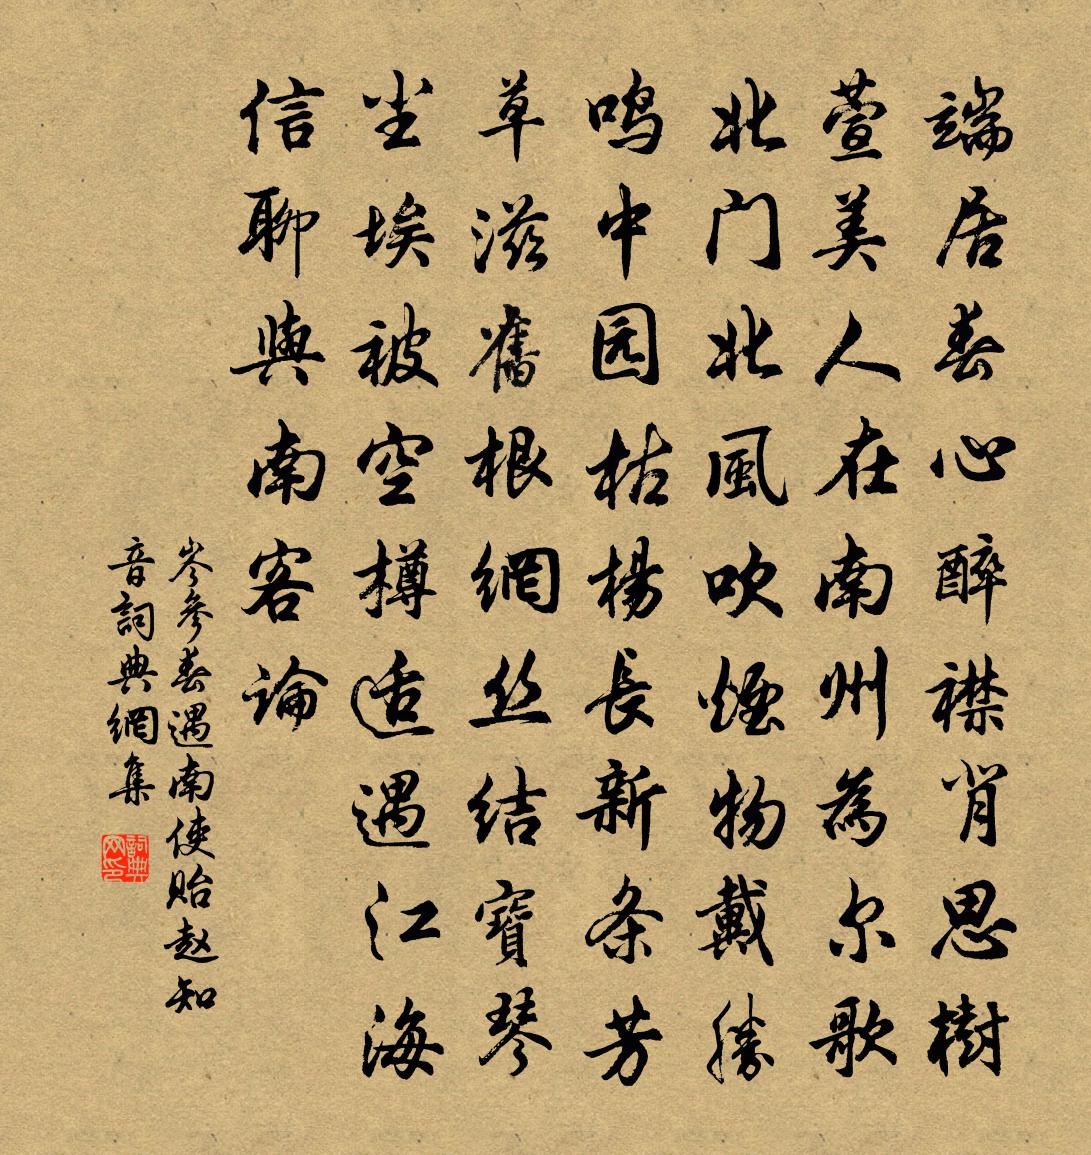 端居春心醉襟肖思樹
萱美人在南州為尔歌
北门北風吹煙物戴勝
鸣中园枯楊長新条芳
草滋舊根網丝结寶琴
尘埃被空樽适遇江海
信聊與南客论
岑參春遇南使貽赵知
音詞典網集
詞典网印